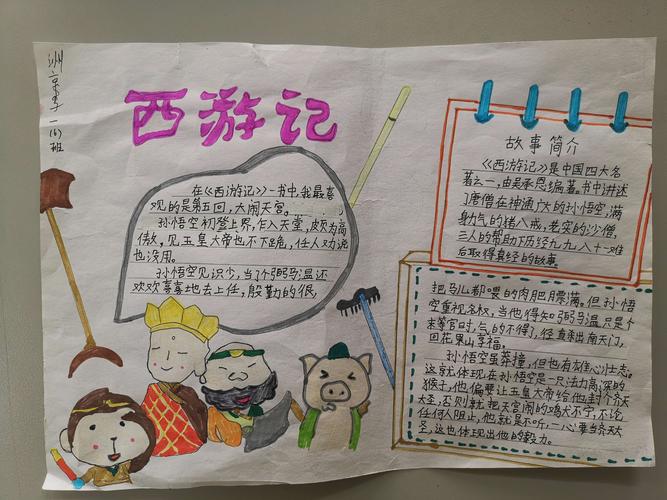 一(6)班
西游记
在《西游记》一书中,我最喜
观的是第五回,大闹天宫。
孙悟空初登上界,乍入天堂,皮及为高
傲,见玉皇大帝也不下跪,任人劝说
也没用。
孙悟空见识少,当了个弼马温还
欢欢喜喜地去上任,殷勤的很,
故事简介
《西游记》是中国四大名
著之一,由吴承恩编著。书中讲述
了唐僧在神通广大的孙悟空,满
身力气的猪八戒,老实的沙僧,
三人的帮助下历经九九八十一难
后取得真经的故事。
把马儿都喂的肉肥膘满。但孙悟
空重视名权,当他得知弼马温只是个
末等官时,气的不得了,径直杀出南天门,
回花果山享福。
孙悟空虽莽撞,但也有雄心壮志。
这就体现在孙悟空是一只法力高深的
猴子,他偏要让玉皇大帝给他封个齐天
大圣,否则就把天宫闹的鸡犬不宁,不论
任何人阻止,他就是不听,一心要当齐天大
圣,这也体现出他的毅力。